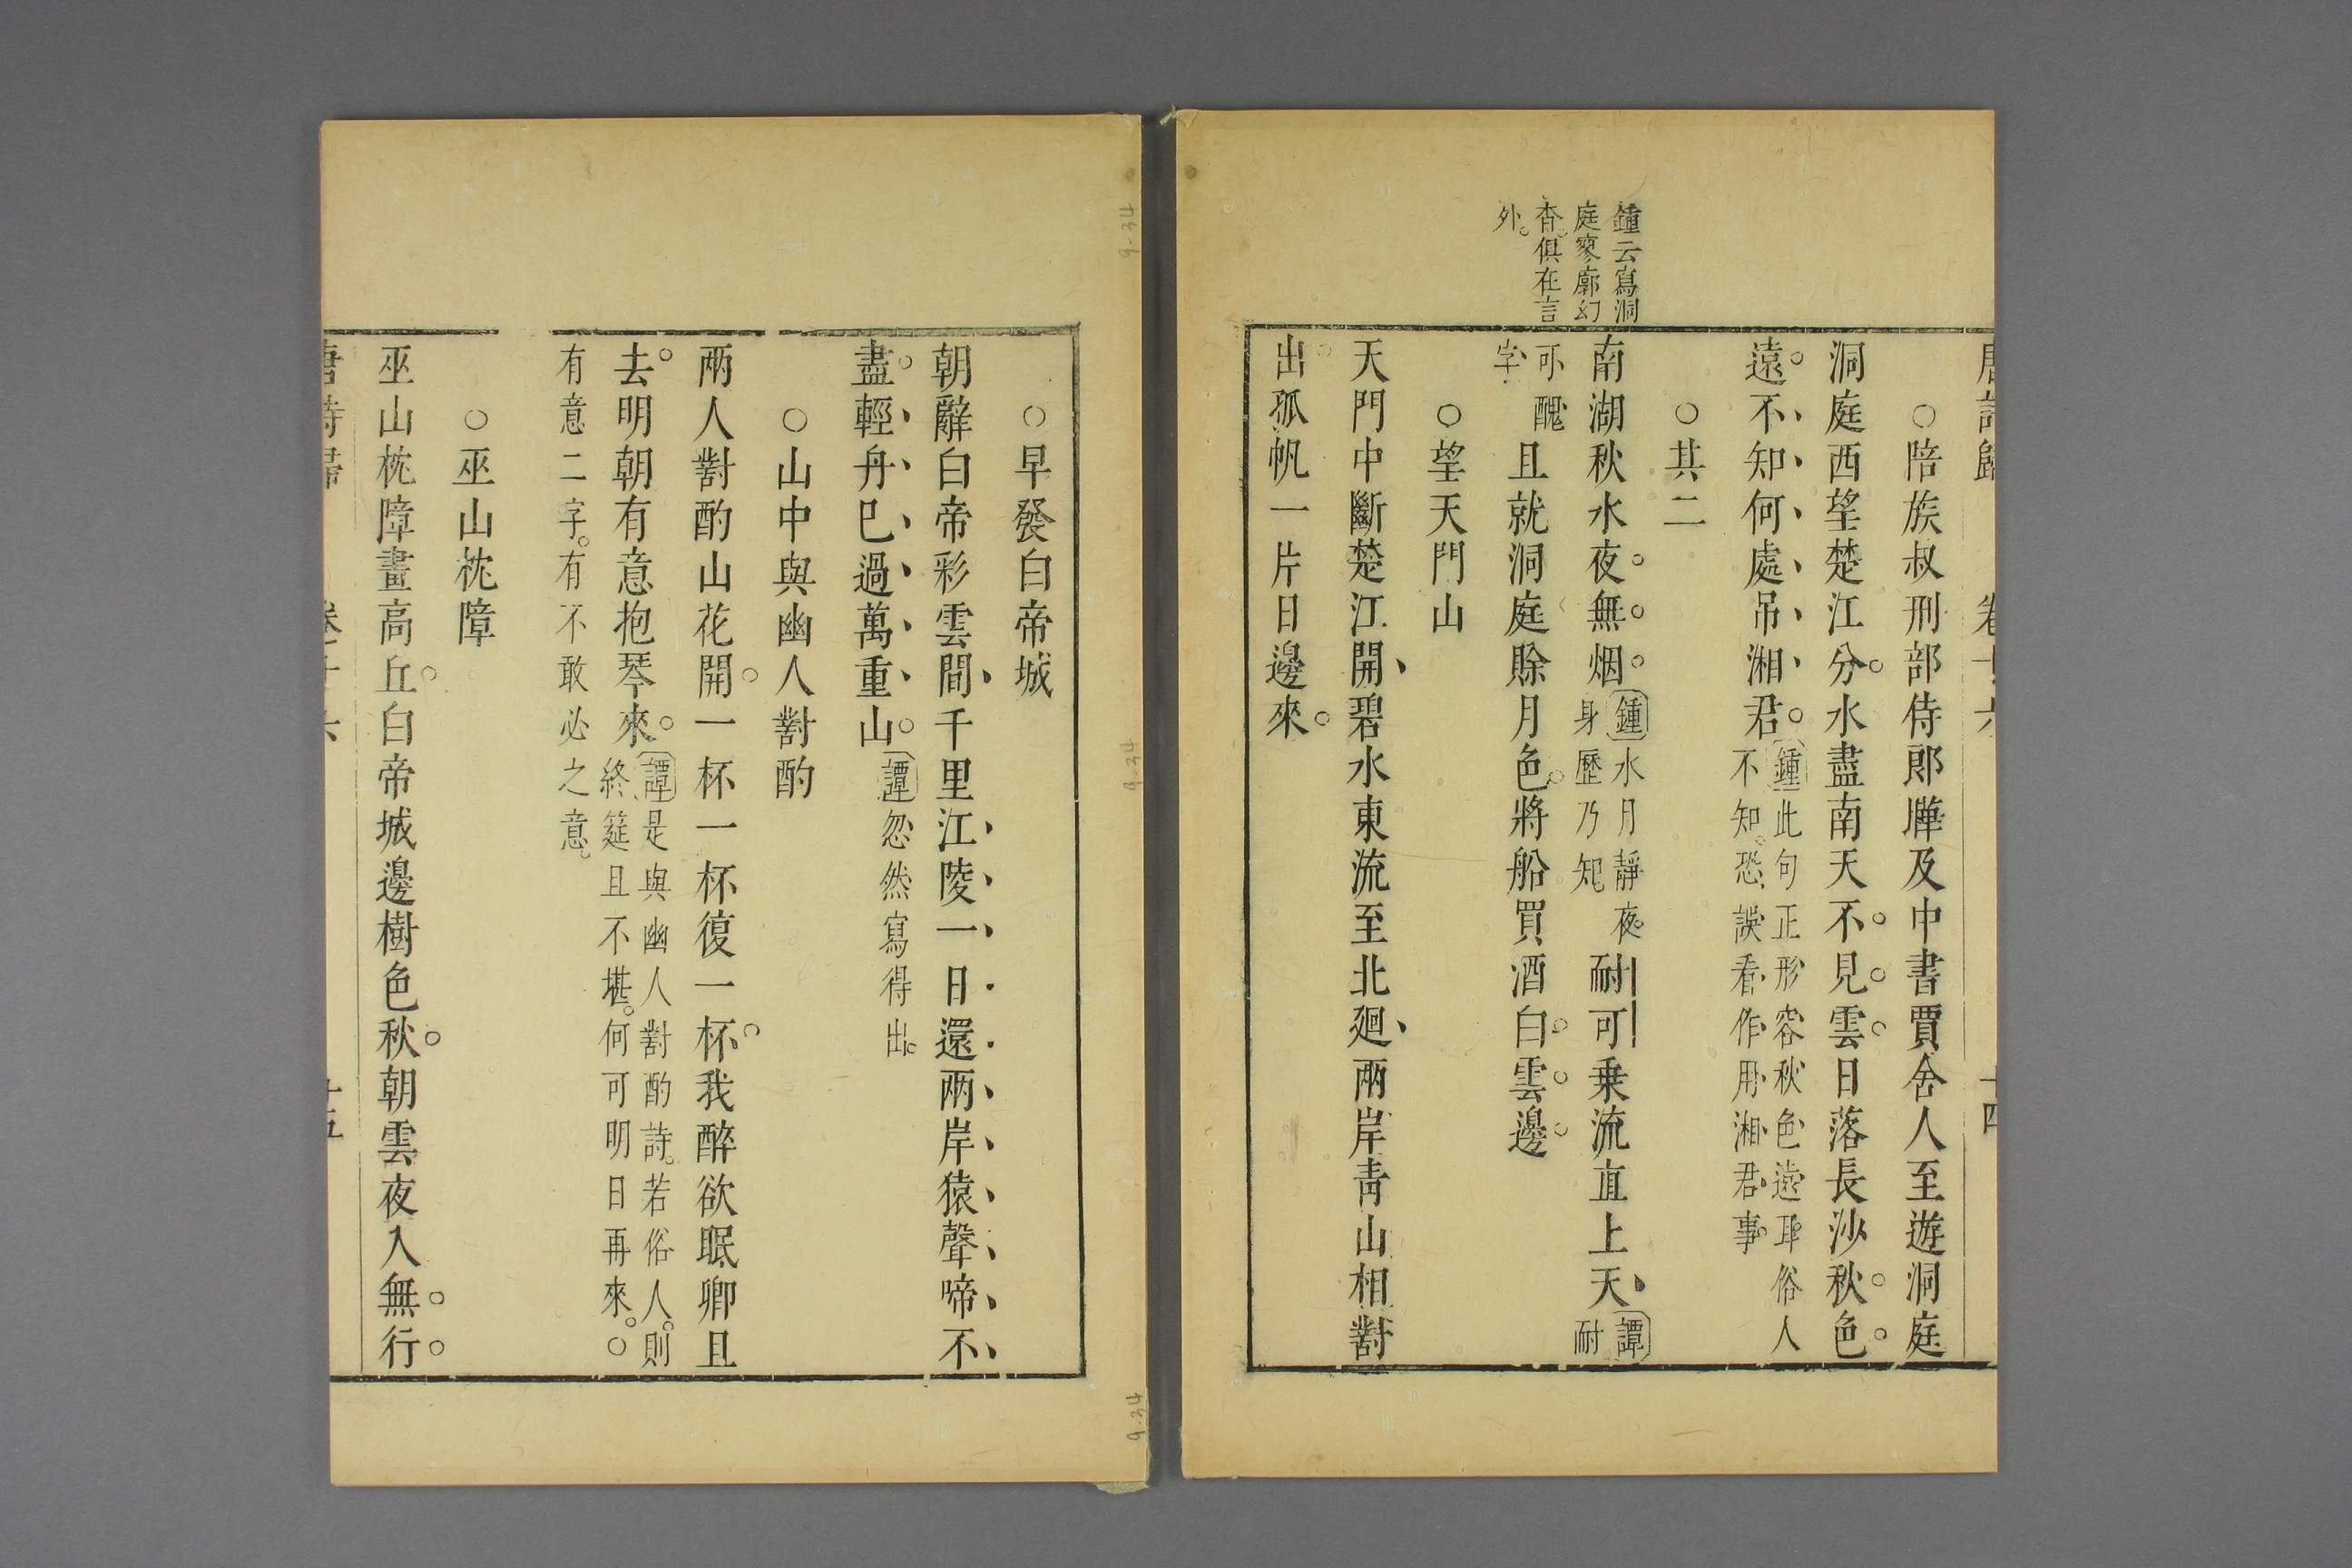 唐詩歸 卷十六 十四
○陪族叔刑部侍郎曄及中書賈舍人至遊洞庭
洞庭西望楚江分水盡南天不見雲日落長沙秋色
遠不知何處吊湘君
鍾此句正形容秋色遠耳俗人
不知恐誤看作用湘君事
○其二
鍾云寫洞
庭寥廓幻
杳俱在言
外
南湖秋水夜無烟
鍾水月靜夜
身歷乃知
耐可乗流直上天
譚
耐
可醜
字
且就洞庭賒月色將船買酒白雲邊
○望天門山
天門中斷楚江開碧水東流至北廻兩岸青山相對
出孤帆一片日邊來
○早發白帝城
朝辭白帝彩雲間千里江陵一日還兩岸猿聲啼不
盡輕舟已過萬重山
譚忽然寫得出
○山中與幽人對酌
兩人對酌山花開一杯一杯復一杯我醉欲眠卿且
去明朝有意抱琴來
譚是與幽人對酌詩若俗人則
終筵且不堪何可明日再來○
有意二字有不敢必之意
○巫山枕障
巫山枕障畫高丘白帝城邊樹色秋朝雲夜入無行
唐詩歸 卷十六 十五
9-34
9-34
9-34